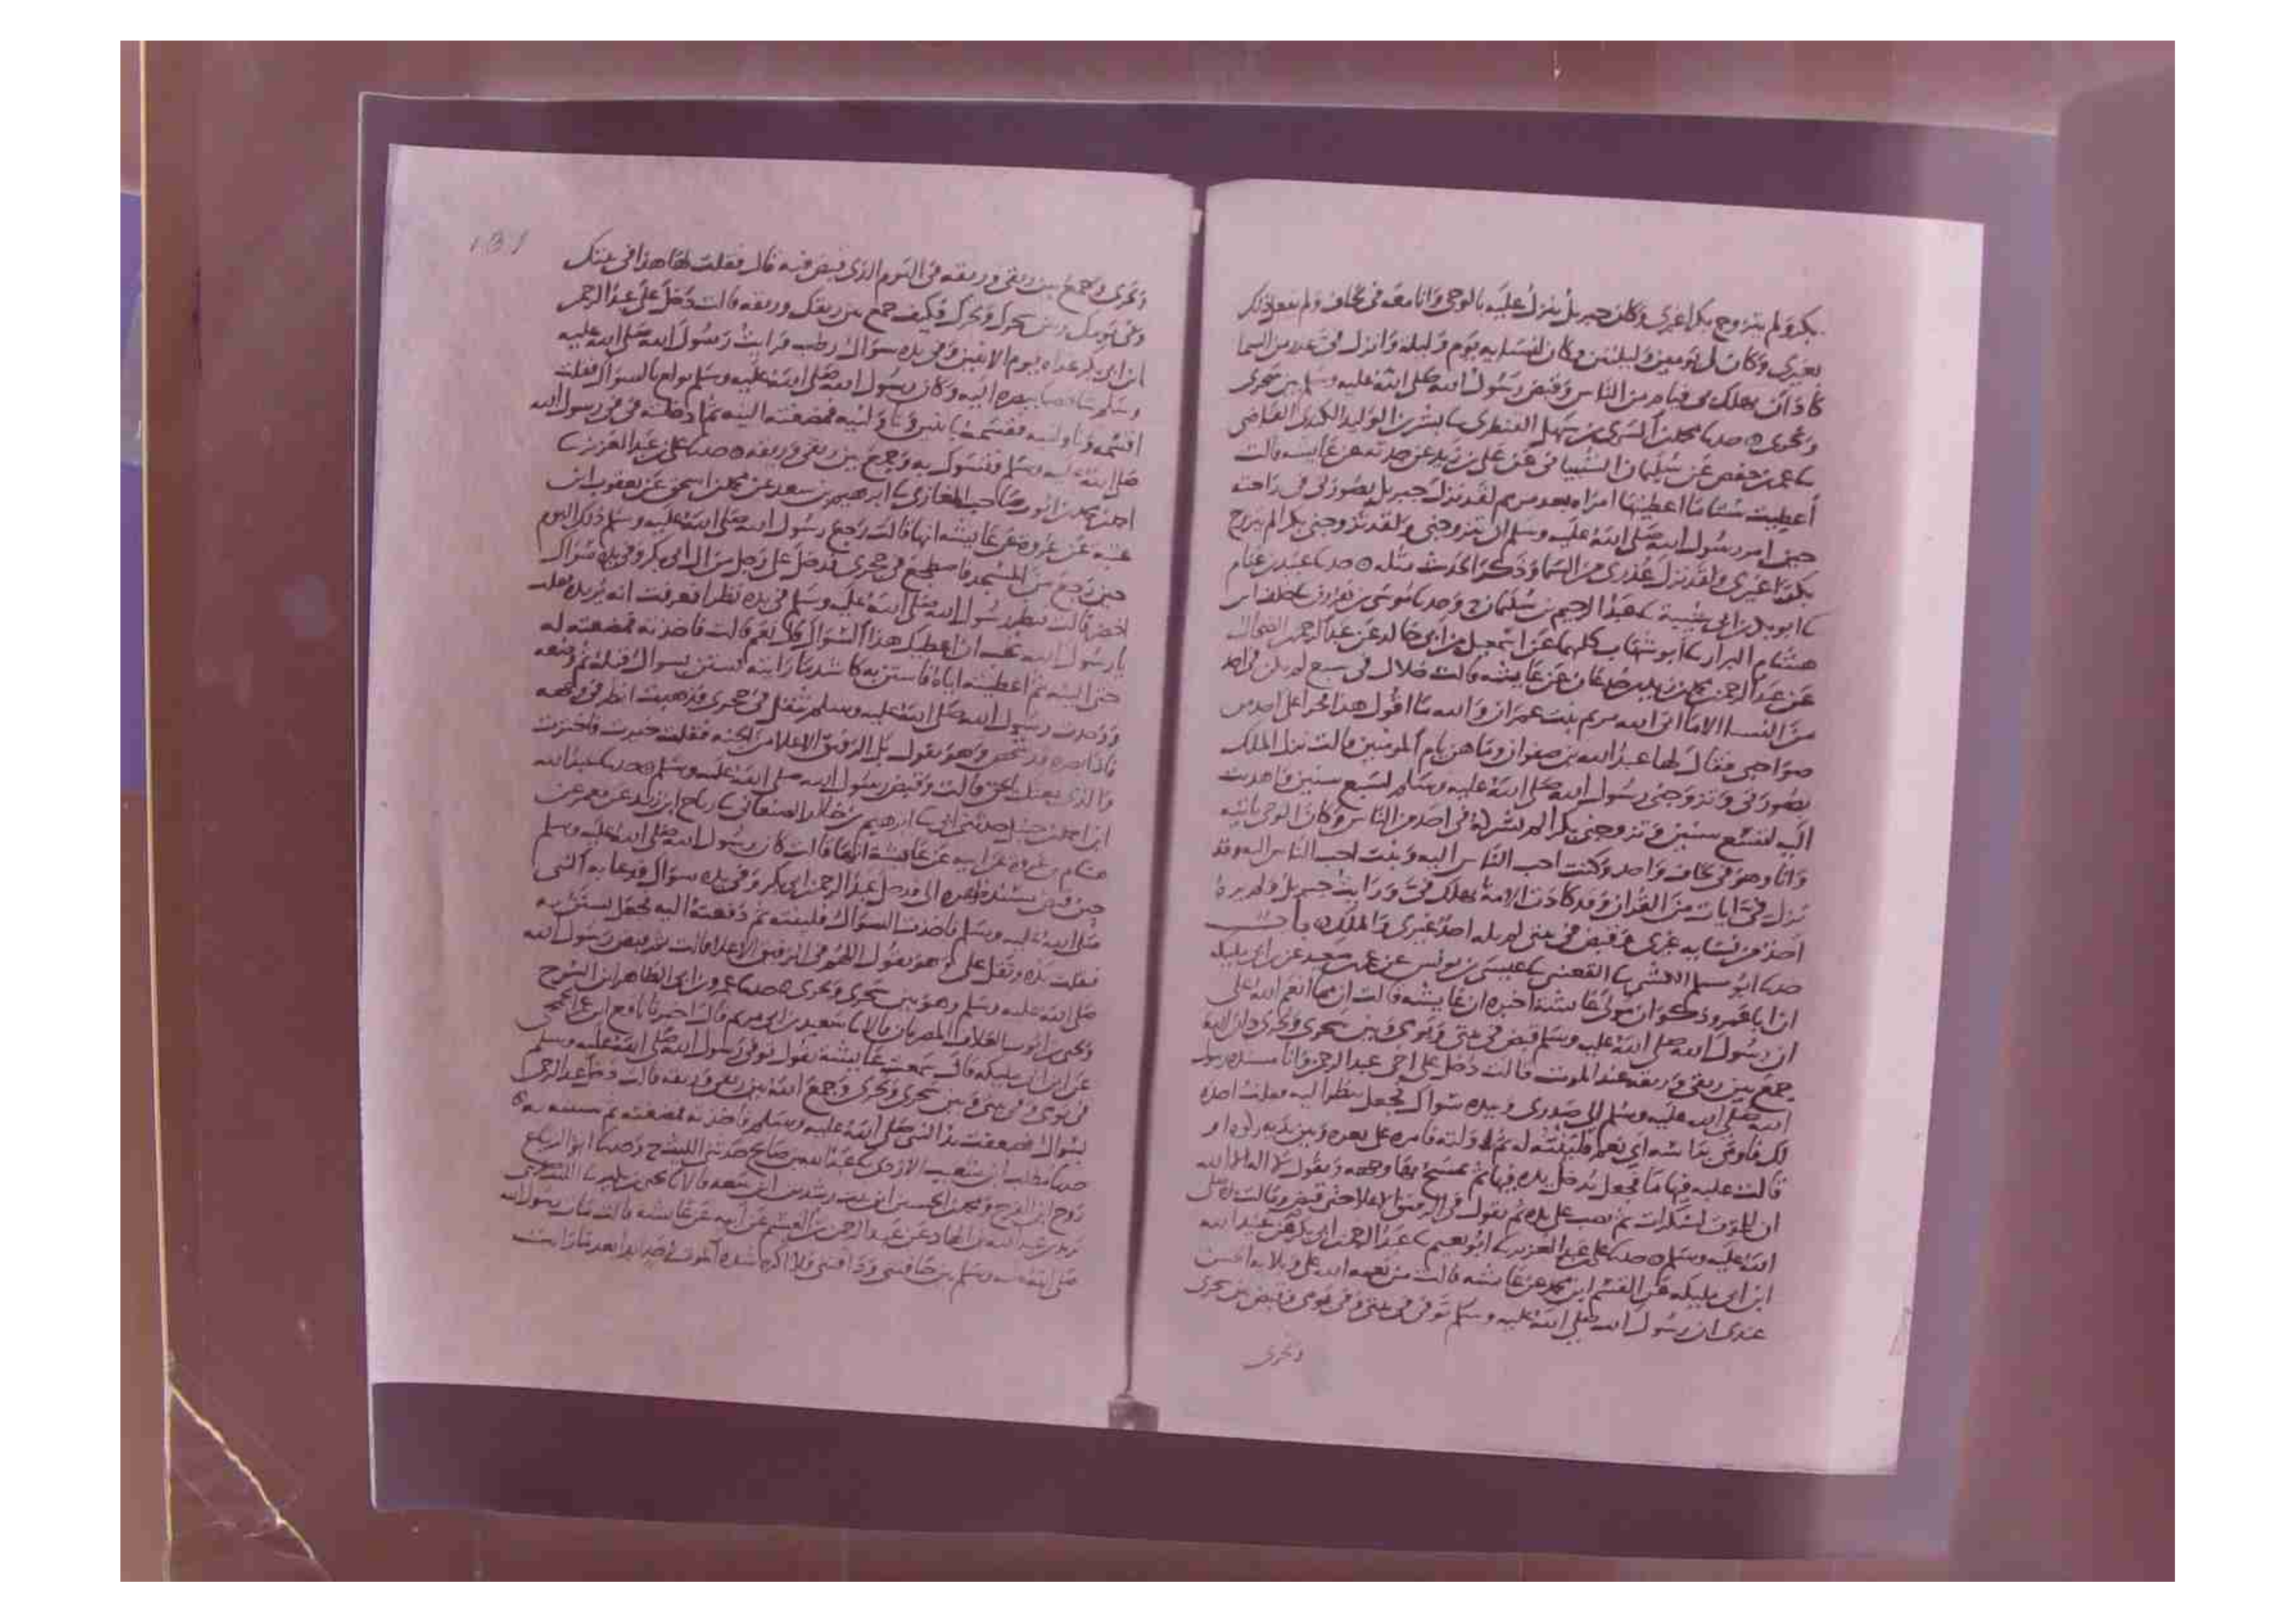 بكر ولم يتزوج بكرا غيري وكان جبريل ينزل عليه بالوحي وانا معه في لحاف ولم يفعل ذلك
بغيري وكان لي يومين وليلتين وكان لنسايه يوم وليلة وانزل في عذر من السما
كاد ان يهلك بي فيام من الناس وقبض رسول الله صلى الله عليه وسلم بين سحري
ونحري حدثنا محمد بن السري بن سهل القنطري نا بشر بن الوليد الكندي القاضي
نا عمر بن حفص عن سليمان الشيباني عن علي بن زيد عن جدته عن عايشة قالت
أعطيت تسعا ما اعطيتها امراة بعد مريم لقد نزل جبريل بصورتي في راحته
حين امر رسول الله صلى الله عليه وسلم ان يتزوجني ولقد تزوجني بكرا لم يتزوج
بكرا غيري ولقد نزل عذري من السما وذكر الحديث مثله حدثنا عبيد بن غنام
نا ابو بكر بن ابي شيبة نا عبد الرحيم بن سليمان ح وحدثنا موسى بن هارون نا خلف ابن
هشام البزار نا أبو شهاب كلهما عن اسمعيل بن ابي خالد عن عبد الرحمن بن الضحاك
عن عبد الرحمن بن محمد بن زيد بن جدعان عن عايشة قالت خلال في سبع لم يكن في احد
من النسا الا ما اتى الله مريم بنت عمران والله ما اقول هذا فخرا على احد من
صواحبي فقال لها عبد الله بن صفوان وما هن يام المومنين قالت نزل الملك
بصورتي وتزوجني رسول الله صلى الله عليه وسلم لسبع سنين واهديت
اليه لتسع سنين وتزوجني بكرا لم يشركه في احد من الناس وكان الوحي ياتيه
وانا وهو في لحاف واحد وكنت احب الناس اليه وبنت احب الناس اليه وقد
نزل في ايات من القران وقد كادت الامة تهلك في ورايت جبريل ولم يره
احد من نسايه غيري وقبض في بيتي لم يله احد غيري والملك باب
حدثنا ابو مسلم الكشي نا القعنبي نا عيسى بن يونس عن عمر بن سعيد عن ابن ابي مليكة
ان ابا عمرو ذكوان مولى عايشة اخبره ان عايشة قالت ان مما انعم الله علي
ان رسول الله صلى الله عليه وسلم قبض في بيتي ويومي وبين سحري ونحري وان الله
جمع بين ريقي وريقه عند الموت قالت دخل علي اخي عبد الرحمن وانا مسندة رسول
الله صلى الله عليه وسلم الى صدري وبيده سواك فجعل ينظر اليه فقلت اخذه
لك فاومى براسه اي نعم فلينته له ثم ناولته فامره على فيه وبين يديه ركوة او
قالت علبة فيها ما فجعل يدخل يده فيها ثم يمسح بها وجهه ويقول لا اله الا الله
ان للموت لسكرات ثم نصب على يده ثم يقول في الرفيق الاعلا حتى قبض وقالت
الله عليه وسلم حدثنا علي بن عبد العزيز نا ابو نعيم نا عبد الرحمن بن ابي بكر عن عبد الله
ابن ابي مليكة عن القسم ابن محمد عن عايشة قالت من نعمة الله علي وبلايه الحسن
عندي ان رسول الله صلى الله عليه وسلم توفي في بيتي وفي يومي وقبض بين سحري
ونحري
ونحري وجمع بين ريقي وريقه في اليوم الذي قبض فيه قال فقلت لها هذا في بيتك
وفي يومك وبين سحرك ونحرك فكيف جمع بين ريقك وريقه قالت دخل علي عبد الرحمن
ابن ابي بكر غداة يوم الاثنين وفي يده سواك رطب فرايت رسول الله صلى الله عليه
وسلم شاخصا ببصره اليه وكان رسول الله صلى الله عليه وسلم يولع بالسواك فقلت
اقسمه وناولنيه فقسمه باثنين وناولنيه فمضغته الينه ثم ادخلته في في رسول الله
صلى الله عليه وسلم فتسوك به وجمع بين ريقي وريقه حدثنا علي بن عبد العزيز نا
احمد بن محمد بن ايوب صاحب المغازي نا ابرهيم بن سعد عن محمد بن اسحق عن يعقوب ابن
عتبة عن عروة عن عايشة انها قالت رجع رسول الله صلى الله عليه وسلم ذلك اليوم
حين رجع من المسجد فاضطجع في حجري فدخل علي رجل من ال ابي بكر وفي يده سواك
اخضر قالت فنظر رسول الله صلى الله عليه وسلم في يده نظرا فعرفت انه يريده فقلت
يا رسول الله تحب ان اعطيك هذا السواك قال نعم قالت فاخذته فمضغته له
حتى الينه ثم اعطيته اياه فاستن به كاشد ما رايته يستن بسواك قبله ثم وضعه
ووجدت رسول الله صلى الله عليه وسلم يثقل في حجري فذهبت انظر في وجهه
فاذا بصره قد شخص وهو يقول بل الرفيق الاعلا من الجنة فقلت خيرت فاخترت
والذي بعثك بالحق قالت وقبض رسول الله صلى الله عليه وسلم حدثنا عبد الله
ابن احمد بن حنبل حدثني ابي نا ابرهيم بن خالد الصنعاني نا رباح ابن زيد عن معمر عن
هشام بن عروة عن ابيه عن عايشة انها قالت كان رسول الله صلى الله عليه وسلم
حين قبض مسند ظهره الي فدخل عبد الرحمن بن ابي بكر وفي يده سواك فدعا به النبي
صلى الله عليه وسلم فاخذت السواك فلينته ثم دفعته اليه فجعل يستن به
فثقلت يده وثقل علي وهو يقول اللهم في الرفيق الاعلا قالت ثم قبض رسول الله
صلى الله عليه وسلم وهو بين سحري ونحري حدثنا عمرو بن ابي الطاهر ابن السرح
ويحيى بن ايوب العلاف المصريان قالا نا سعيد بن ابي مريم قال اخبرنا نافع ابن عمر الجمحي
عن ابن ابي مليكة قال سمعت عايشة تقول توفي رسول الله صلى الله عليه وسلم
في يومي وفي بيتي وبين سحري ونحري وجمع الله بين ريقي وريقه قالت دخل عبد الرحمن
بسواك فضعف عنه النبي صلى الله عليه وسلم فاخذته فمضغته ثم سننته به
حدثنا مطلب ابن شعيب الازدي نا عبد الله بن صالح حدثني الليث ح وحدثنا ابو الزنباع
روح ابن الفرج نا يحيى بن بكير نا الليث عن
يزيد بن عبد الله بن الهاد عن عبد الرحمن بن القسم عن ابيه عن عايشة قالت مات رسول الله
صلى الله عليه وسلم بين حاقنتي وذاقنتي فلا اكره شدة الموت لاحد ابدا بعد ما رايت